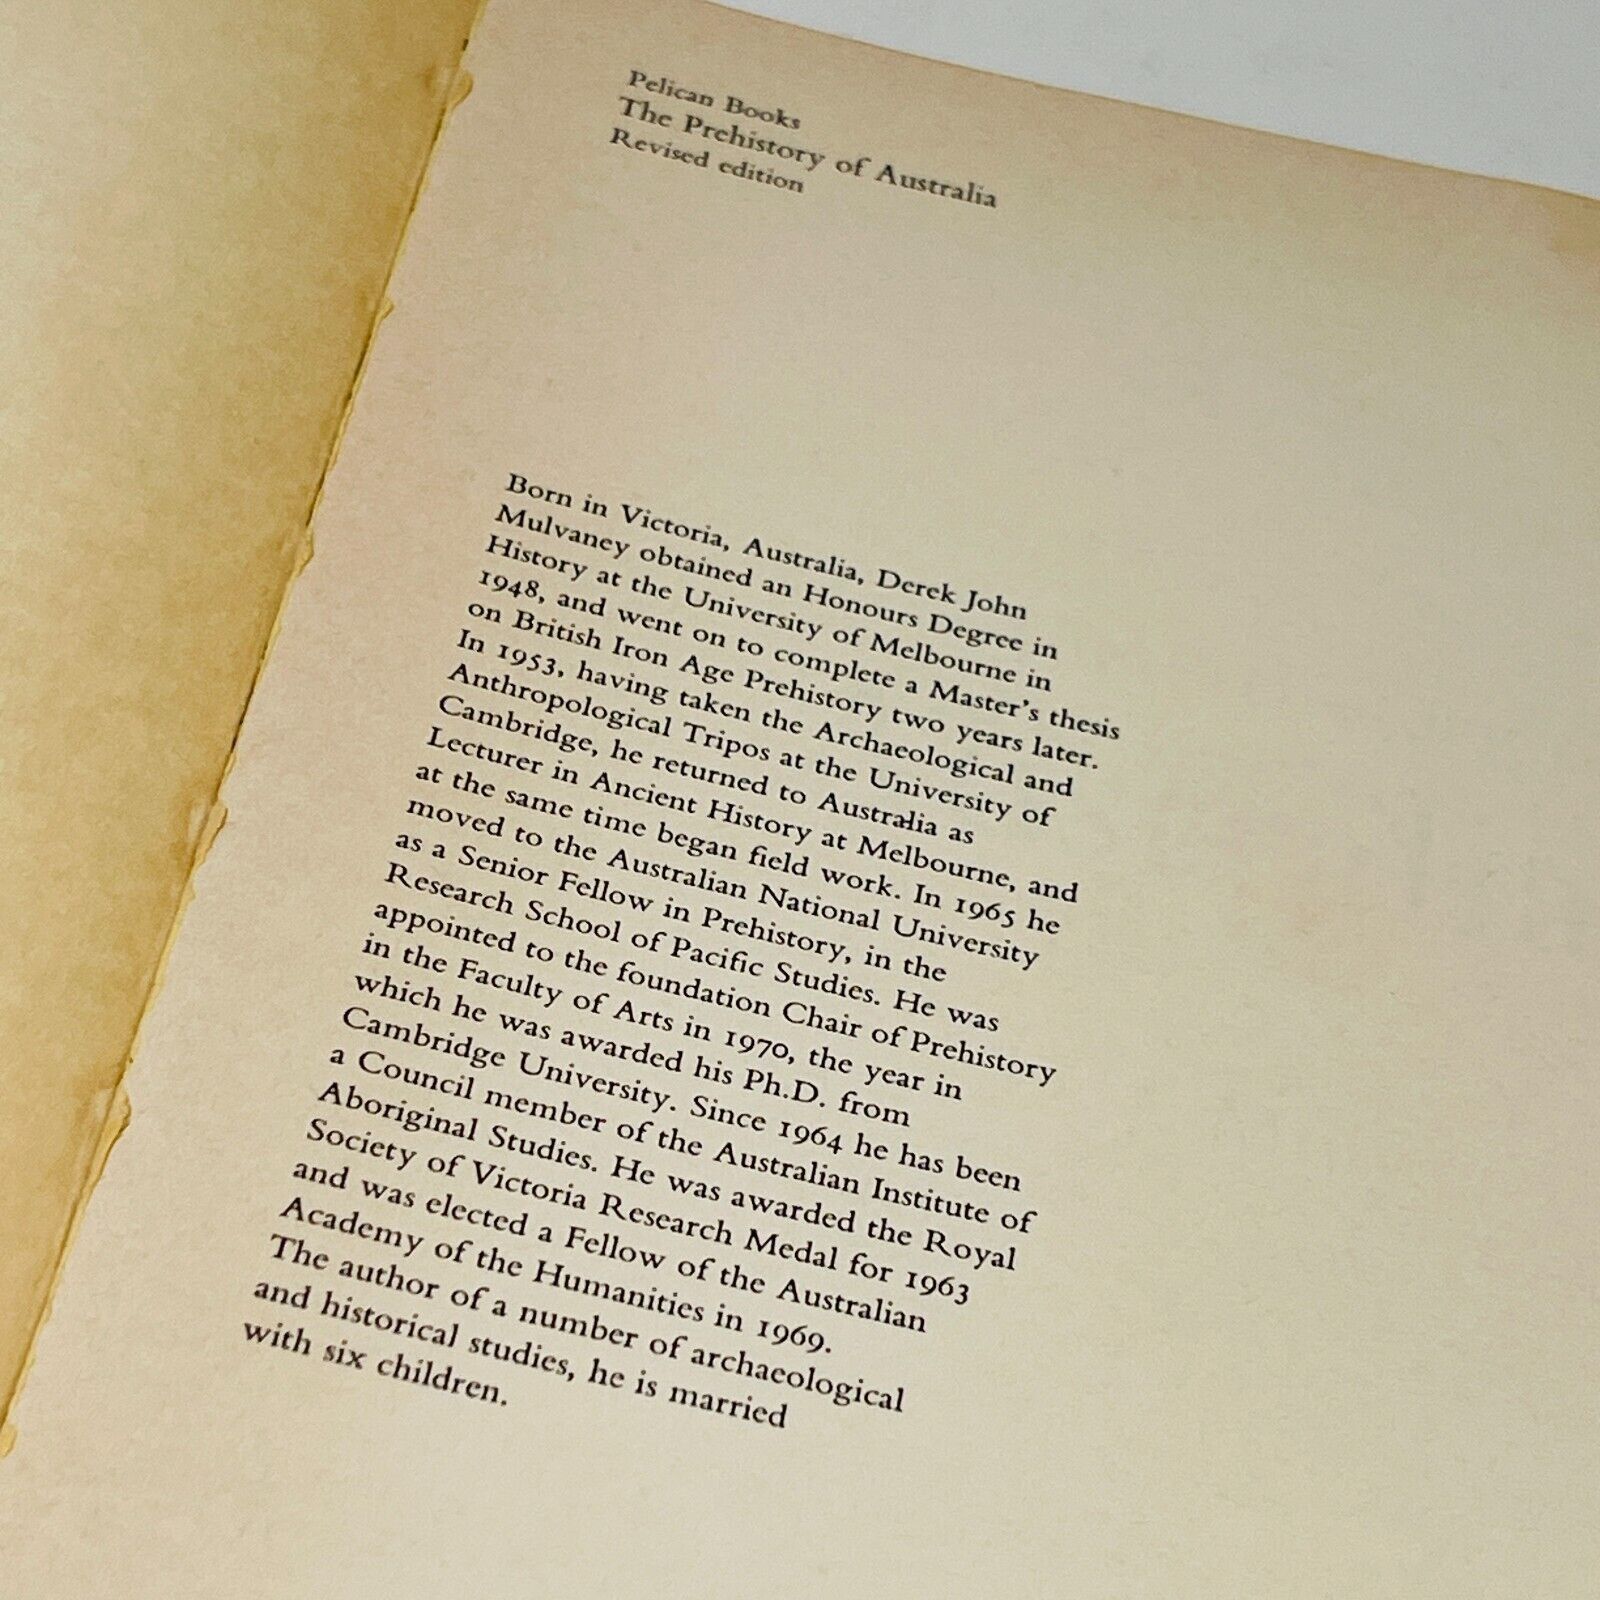 Pelican Books
The Prehistory of Australia
Revised edition
Born in Victoria, Australia, Derek John
Mulvaney obtained an Honours Degree in
History at the University of Melbourne in
1948, and went on to complete a Master's thesis
on British Iron Age Prehistory two years later.
In 1953, having taken the Archaeological and
Anthropological Tripos at the University of
Cambridge, he returned to Australia as
Lecturer in Ancient History at Melbourne, and
at the same time began field work. In 1965 he
moved to the Australian National University
as a Senior Fellow in Prehistory, in the
Research School of Pacific Studies. He was
appointed to the foundation Chair of Prehistory
in the Faculty of Arts in 1970, the year in
which he was awarded his Ph.D. from
Cambridge University. Since 1964 he has been
a Council member of the Australian Institute of
Aboriginal Studies. He was awarded the Royal
Society of Victoria Research Medal for 1963
and was elected a Fellow of the Australian
Academy of the Humanities in 1969.
The author of a number of archaeological
and historical studies, he is married
with six children.